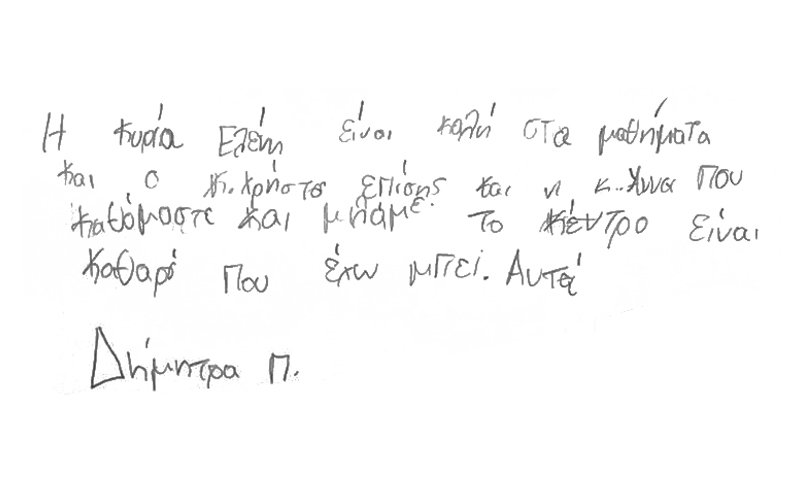 Η κυρία Ελένη είναι καλή στα μαθήματα
και ο κ. Χρήστο επίσης και η κ. Άννα που
καθόμαστε και μιλάμε. Το κέντρο είναι
καθαρό που έχω μπεί. Αυτά
Δήμητρα Π.